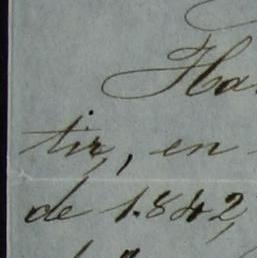 Ha
tir, en
de 1.842,